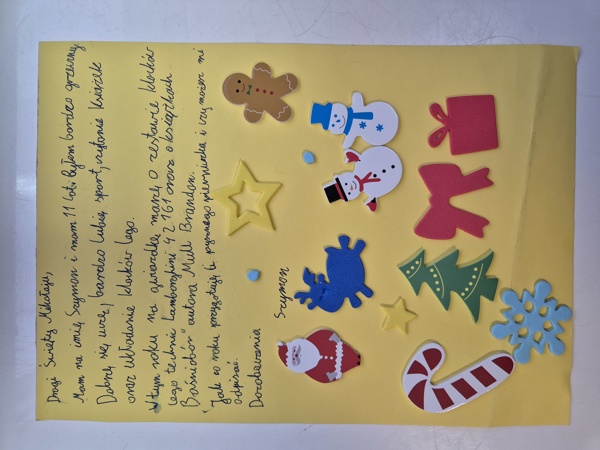 Drogi Święty Mikołaju,
Mam na imię Szymon i mam 11 lat. Byłem bardzo grzeczny.
Dobrze się uczę, bardzo lubię sport, czytanie książek
oraz układanie klocków lego.
W tym roku na gwiazdkę marzę o zestawie klocków
lego technic Lamborghini 42161 oraz o książkach
"Baśniobór" autora Mull Brandon.
Jak co roku przygotuję Ci pysznego pierniczka i czy możesz mi
odpisać.
Dozobaczenia
Szymon